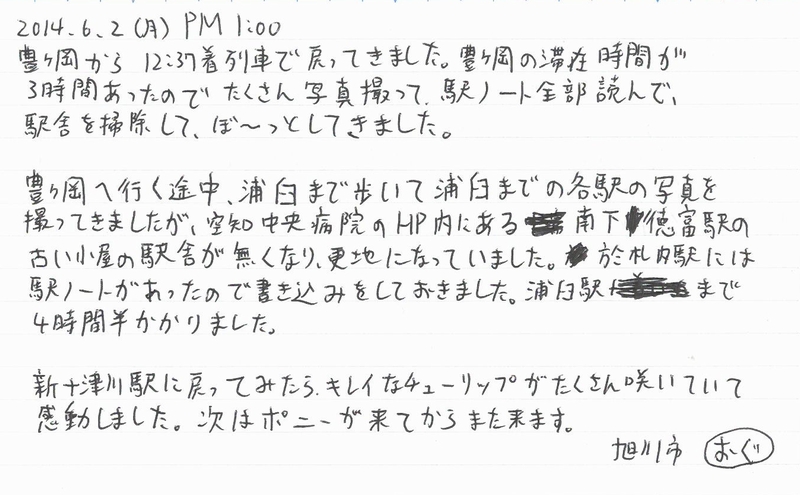 2014.6.2(月) PM 1:00
豊ヶ岡から 12:37着列車で戻ってきました。豊ヶ岡の滞在時間が
3時間あったのでたくさん写真撮って、駅ノート全部読んで、
駅舎を掃除して、ぼ～っとしてきました。
豊ヶ岡へ行く途中、浦臼まで歩いて浦臼までの各駅の写真を
撮ってきましたが、空知中央病院のHP内にある 南下徳富駅の
古い小屋の駅舎が無くなり、更地になっていました。於札内駅には
駅ノートがあったので書き込みをしておきました。浦臼駅 まで
4時間半かかりました。
新十津川駅に戻ってみたら、キレイなチューリップがたくさん咲いていて
感動しました。次はポニーが来てからまた来ます。
旭川市 おーぐり